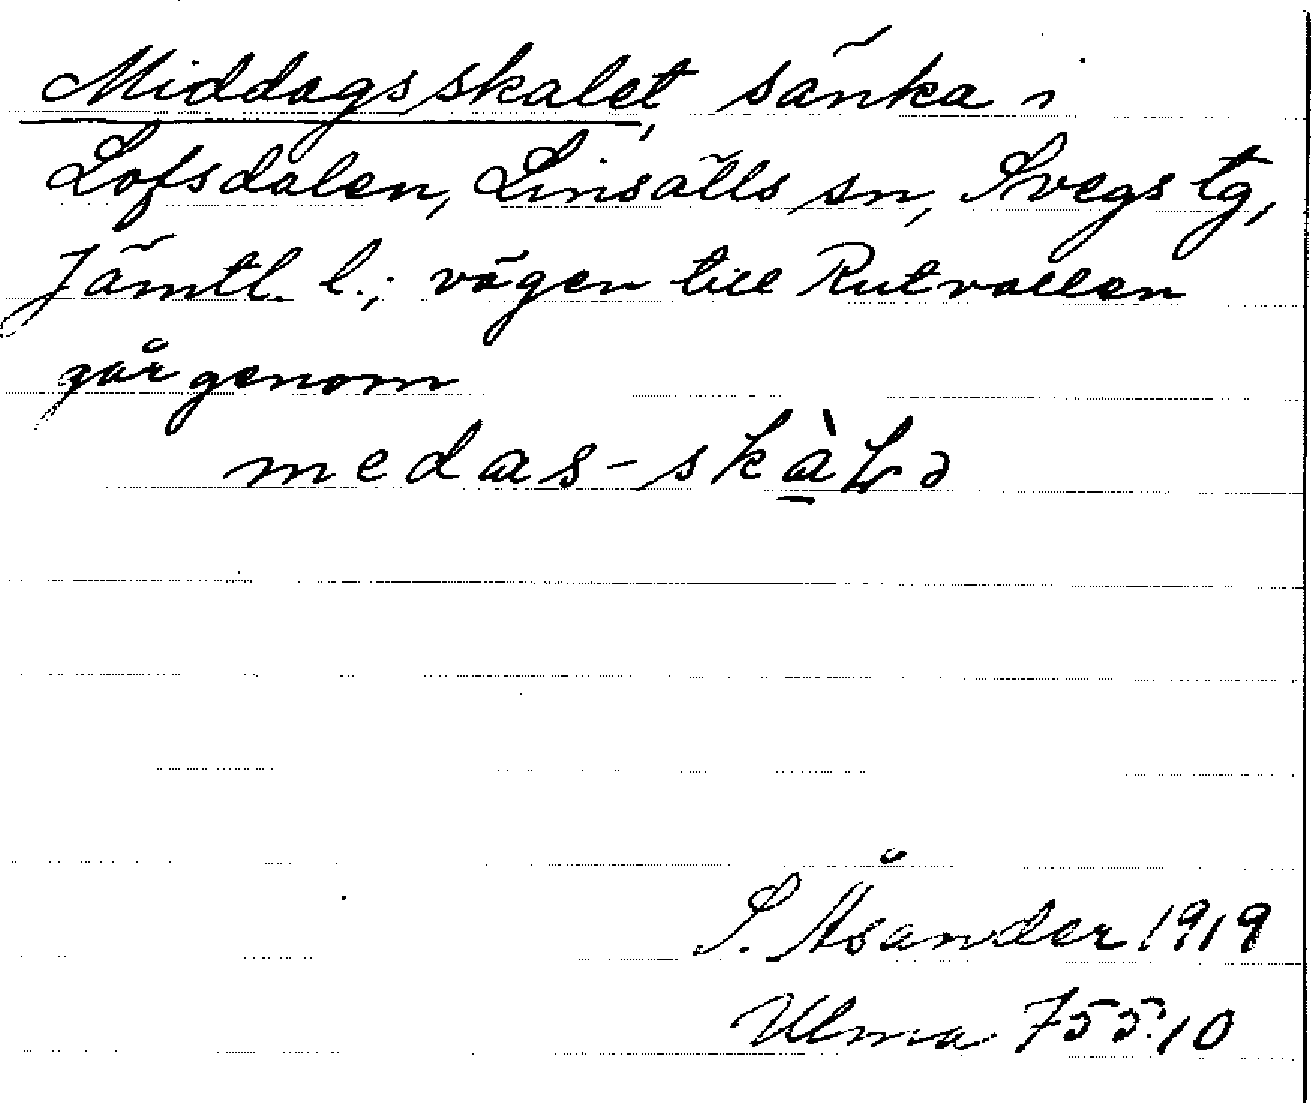 Middagsskalet, sänka i
Lofsdalen, Linsälls sn, Svegs tg,
Jämtl. l.; vägen till Rutvallen
går genom
medas-skàLə
S. Åsander 1919
Ulma 755:10